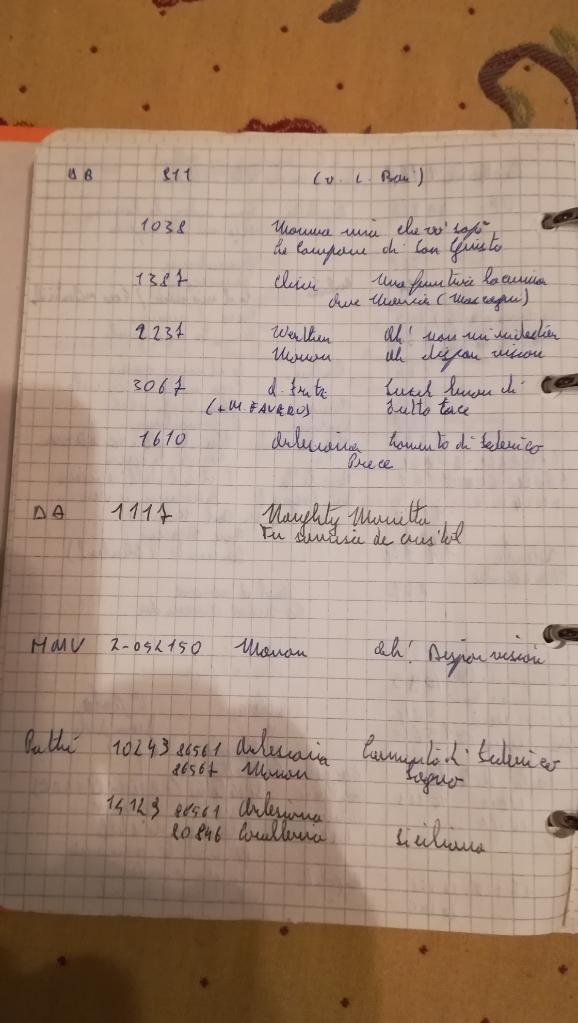 DB 811 (v. L. Bori)
1038 Mamma mia che vo' sapè
Le campane di San Giusto
1387 Elisir Una furtiva lacrima
due Mascagni (Mascagni)
2237 Werther Ah! non mi ridestar
Manon Ah dispar vision
3067 A. Fritz Suzel buon dì
(+ M. FAVERO) Tutto tace
1610 Arlesiana Lamento di Federico
Prece
DA 1117 Naughty Marietta
HMV 2-052150 Manon Ah! Dispar vision
Pathé 10243 86561 Arlesiana Lamento di Federico
86567 Manon Sogno
14123 86561 Arlesiana
20846 Cavalleria Siciliana